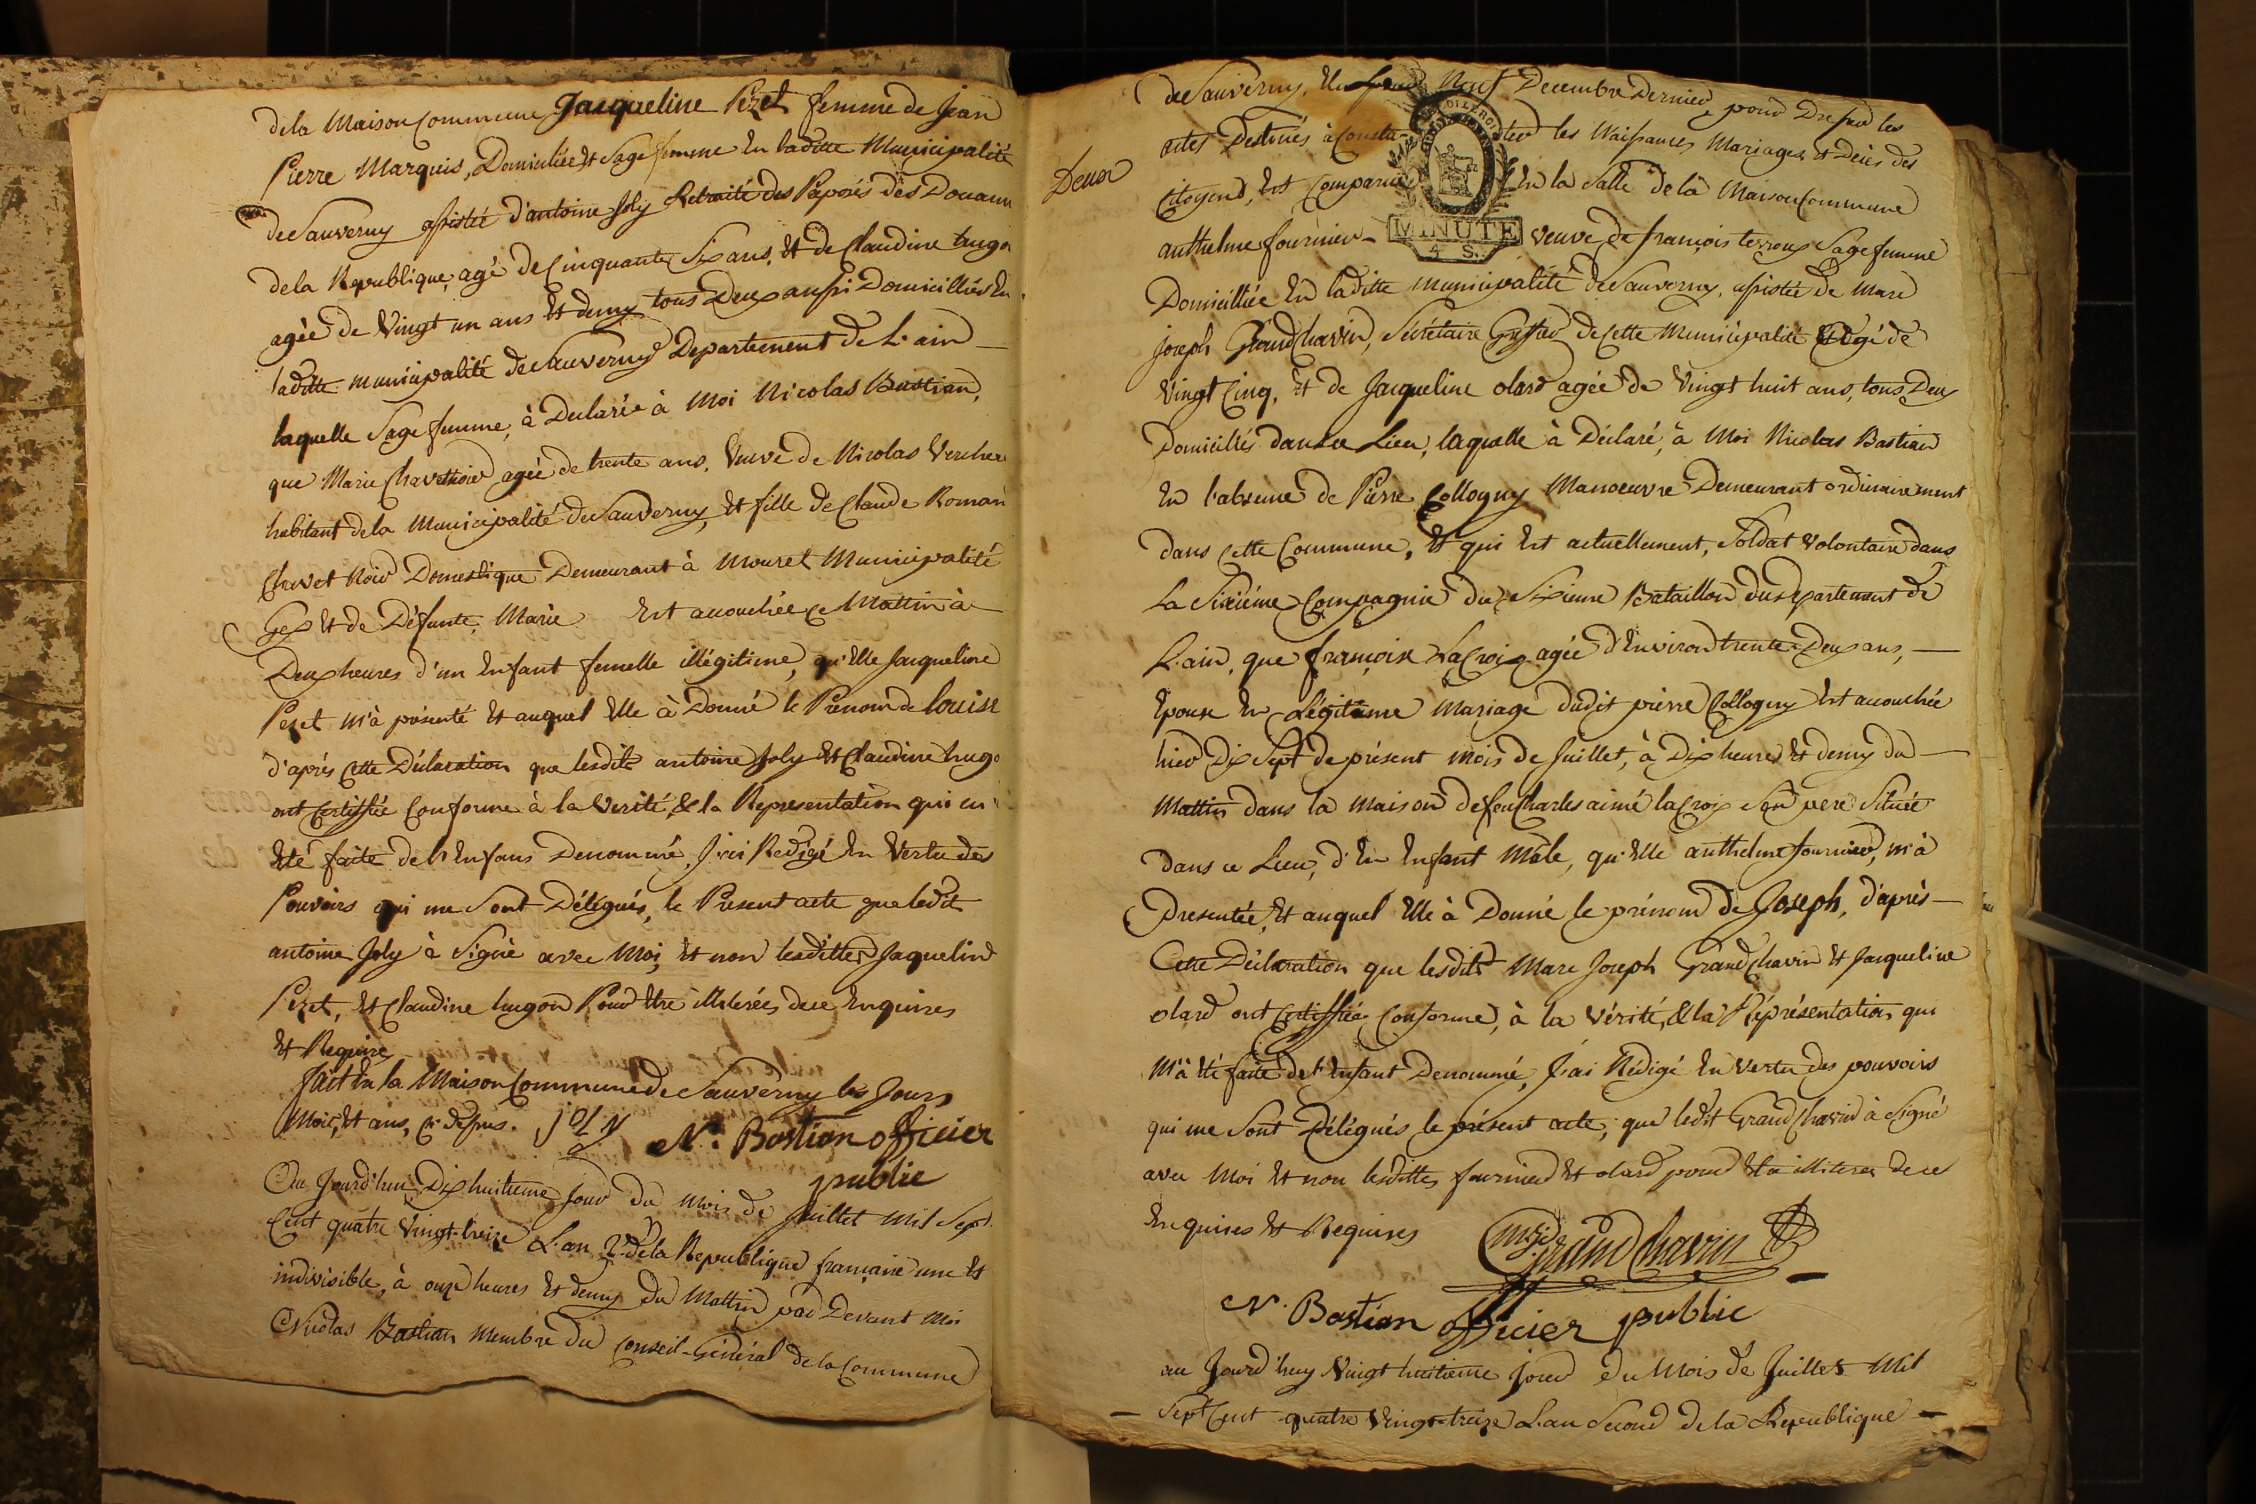 de la Maison Commune Jacqueline Pezet femme de Jean
Pierre Marquis, Domiciliée et Sage femme En laditte Municipalité
de Sauverny assistée d'antoine Joly Retraité des Péposés des Douann
de la Republique, agé de Cinquante Six ans, Et de Claudine hugo
agée de Vingt un ans Et demy tous Deux aussi Domiciliés En
laditte municipalité de Sauverny Departement de L'ain
laquelle Sage femme, à Declarée à Moi Nicolas Bastian,
que Marie Chavetnoir agée de trente ans, Veuve de Nicolas Verchere
habitant de la Municipalité de Sauverny, Et fille de Claude Roman
Chavet Noir Domestique Demeurant à Mourex Municipalité
Gex Et de Défunte, Marie Est accouchée ce Mattin à
Deux heures d'un Enfant femelle illégitime, qu'Elle Jacqueline
Pezet m'à présenté Et auquel Elle à Donné le Prénom de Louise
d'après Cette Déclaration que lesdits antoine Joly Et Claudine hugo
ont Certiffiée Conforme à la Verité, & la Representation qui en
Eté faite de l'Enfans Denommé, J'ai Redigé En Vertu des
Pouvoirs qui me Sont Délégués, le Present acte que ledit
antoine Joly à Signé avec Moi, Et non lesdittes Jaqueline
Pezet, Et Claudine hugon Pour Etre illiterées de ce Enquises
Et Requises
fait En la Maison Commune de Sauverny les Jours
Mois, Et ans, Cy dessus. joly
N. Bastian officier
public
Au Jourd'hui Dix huitieme Jour du mois de Juillet Mil Sept
Cent quatre Vingt treize L'an 2.e de la Republique francaise une Et
indivisible, à onze heures Et demy du Mattin par Devant Moi
Nicolas Bastian Membre du Conseil-Général de la Commune
de Sauverny, Neuf Decembre Dernier, pour Dresser les
actes Destinés à Consta-ter les Naissances Mariages et Décès des
Deux
Citoyens, Est Comparue En la Salle de la Maison Commune
anthelme fournier- veuve de françois terroux Sage femme
Domiciliée En laditte municipalité de Sauverny, assistée de Marc
Joseph GrandChavin, Secrétaire Greffier de cette Municipalité Agé de
Vingt Cinq, Et de Jacqueline olard agée de Vingt huit ans, tous Deux
Domiciliés dans ce Lieu, laquelle à Déclaré, à Moi Nicolas Bastian
En l'absence de Pierre Collogny Manoeuvre Demeurant ordinairement
dans Cette Commune, Et qui Est actuellement, Soldat Volontaire dans
La Sixiéme Compagnie du Sixieme Bataillon du Departement de
L'ain, que françoise LaCroix agée d'Environ trente Deux ans,
Epouse En Légitime Mariage dudit pierre Collogny Est accouchée
hier Dix Sept de présent mois de Juillet, à Dix heures Et demy du
Mattin dans la Maison de feu Charles aimé laCroix Son pere Située
dans ce Lieu, d'En Enfant Mâle, qu'Elle anthelme fournier, m'à
Presentée, Et auquel Elle à Donné le prénom de Joseph, d'après
Cette Déclaration que lesdits Marc Joseph GrandChavin Et Jacqueline
olard ont Certiffiée Conforme, à la Vérité, & la Réprésentation qui
M'à Eté faite de l'Enfant Denommé, J'ai Rédigé En vertu des pouvoirs
qui me Sont Délégués le présent acte, que ledit GrandChavin à Signé
avec Moi Et non lesdittes fournier Et olard pour Etre illiterées de ce
Enquises Et Requises
GrandChavin
N. Bastian officier public
MINUTE
4 S.
au Jourd'huy Vingt huitieme Jour du Mois de Juillet Mil
Sept Cent quatre Vingt treize L'an Second de la Republique